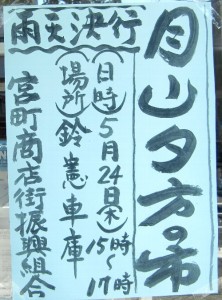 月山夕方の市
雨天決行
(日時)5月24日(木)15時〜17時
(場所)鈴憲車庫
宮町商店街振興組合